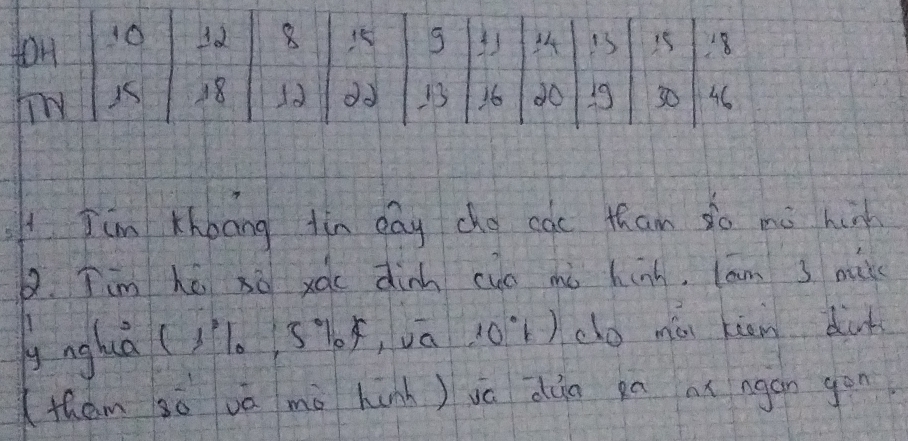 ĐH 10 12 8 15 9 11 14 13 15 18
TN 15 18 12 22 13 16 20 19 30 46
1. Tìm khoảng tin cậy cho các tham số mô hình
2. Tìm hệ số xác định của mô hình. Làm 3 mức
ý nghĩa (1%, 5%, và 10%) cho mỗi kiểm định
(tham số và mô hình) và đưa ra ngắn gọn.